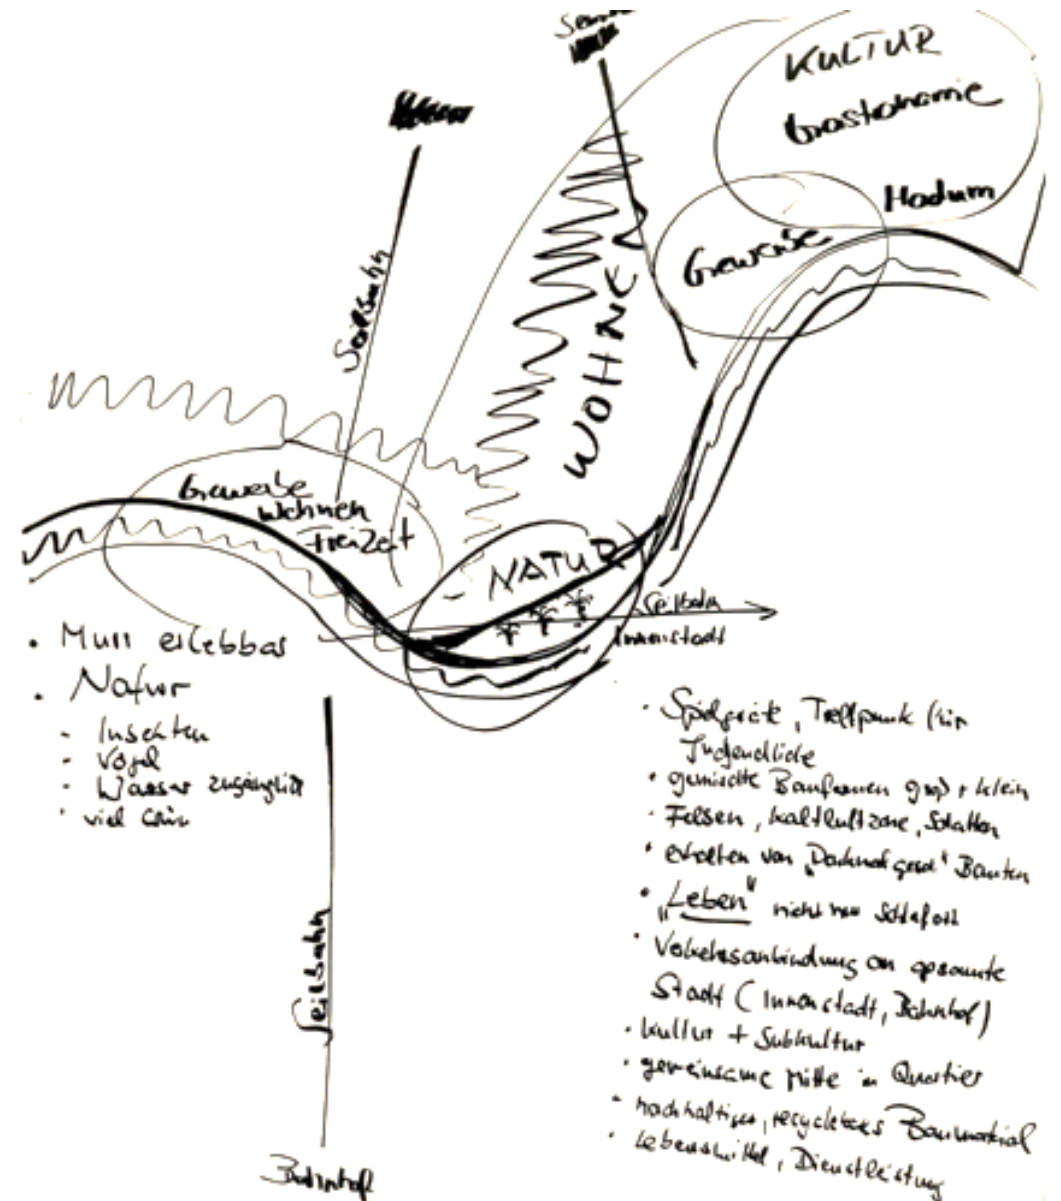 KULTUR
Gastronomie
Hadum
Gewerbe
WOHNEN
Seilbahn
Gewerbe
Wohnen
Freizeit
NATUR
Seilbahn
Innenstadt
• Murr erlebbar
• Natur
- Insekten
- Vögel
- Wasser zugänglich
• viel Grün
Seilbahn
Bahnhof
• Spielgeräte, Treffpunk für
Jugendliche
• gemischte Bauformen groß + klein
• Felsen, Kaltluftzone, Schatten
• erhalten von " Bauten
• "Leben" nicht nur Schlafort
• Verkehrsanbindung an gesamte
Stadt (Innenstadt, Bahnhof)
• Kultur + Subkultur
• gemeinsame Mitte in Quartier
• nachhaltiges, recyclebares Baumaterial
• Lebensmittel, Dienstleistung